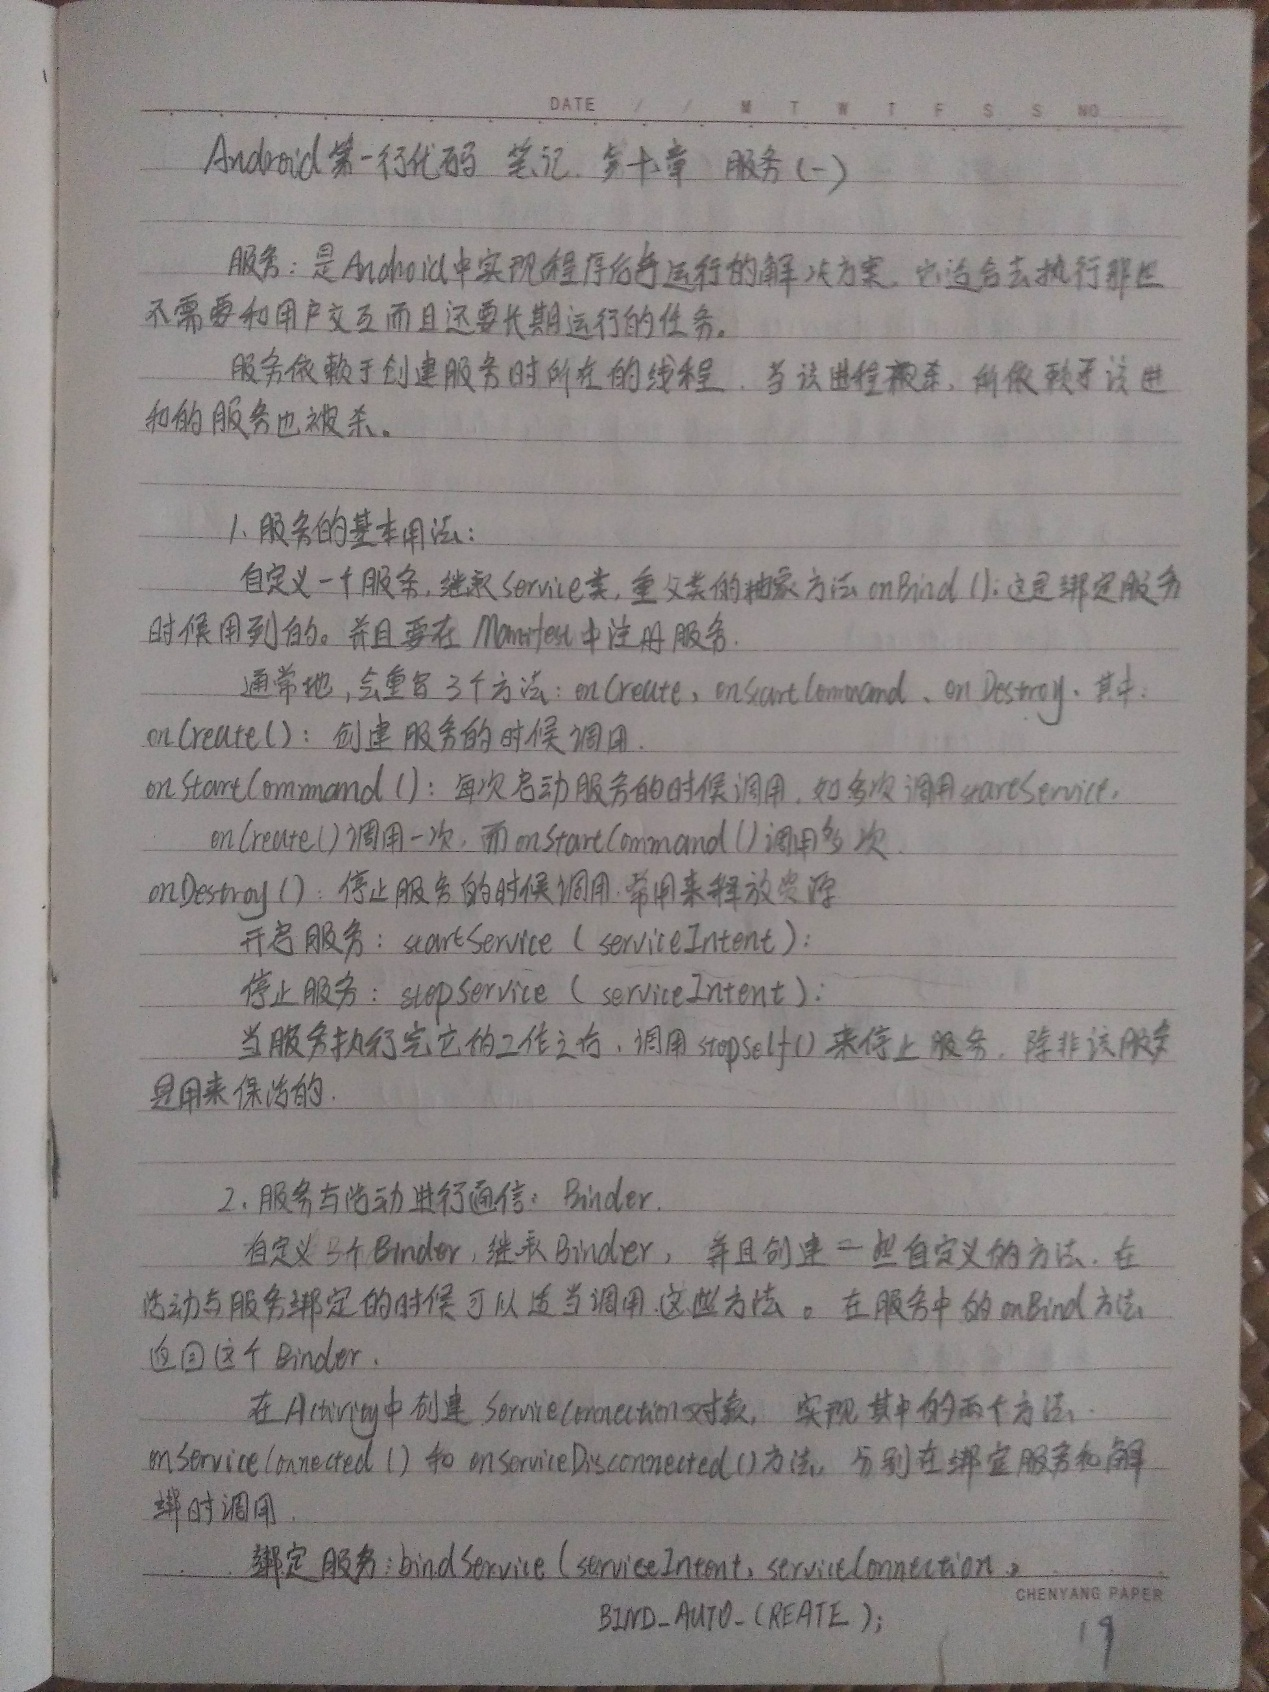 DATE / / M T W T F S S NO
Android第一行代码 笔记 第十章 服务(一)
服务：是Android中实现程序后台运行的解决方案，它适合去执行那些
不需要和用户交互而且还要长期运行的任务。
服务依赖于创建服务时所在的线程，当该进程被杀，所依赖于该进
程的服务也被杀。
1、服务的基本用法：
自定义一个服务，继承Service类，重父类的抽象方法onBind()；这是绑定服务
时候用到的。并且要在Manifest中注册服务.
通常地，会重写3个方法：onCreate、onStartCommand、onDestroy. 其中：
onCreate()：创建服务的时候调用.
onStartCommand()：每次启动服务的时候调用，如多次调用startService，
onCreate()调用一次，而onStartCommand()调用多次.
onDestroy()：停止服务的时候调用.常用来释放资源
开启服务：startService(serviceIntent);
停止服务：stopService(serviceIntent);
当服务执行完它的工作之后，调用stopSelf()来停止服务，除非该服务
是用来保活的.
2、服务与活动进行通信：Binder.
自定义个Binder，继承Binder，并且创建一些自定义的方法.在
活动与服务绑定的时候可以适当调用这些方法。在服务中的onBind方法
返回这个Binder.
在Activity中创建ServiceConnection对象，实现其中的两个方法.
onServiceConnected()和onServiceDisconnected()方法，分别在绑定服务和解
绑时调用.
绑定服务：bindService(serviceIntent, serviceConnection,
CHENYANG PAPER
BIND_AUTO_CREATE);
19